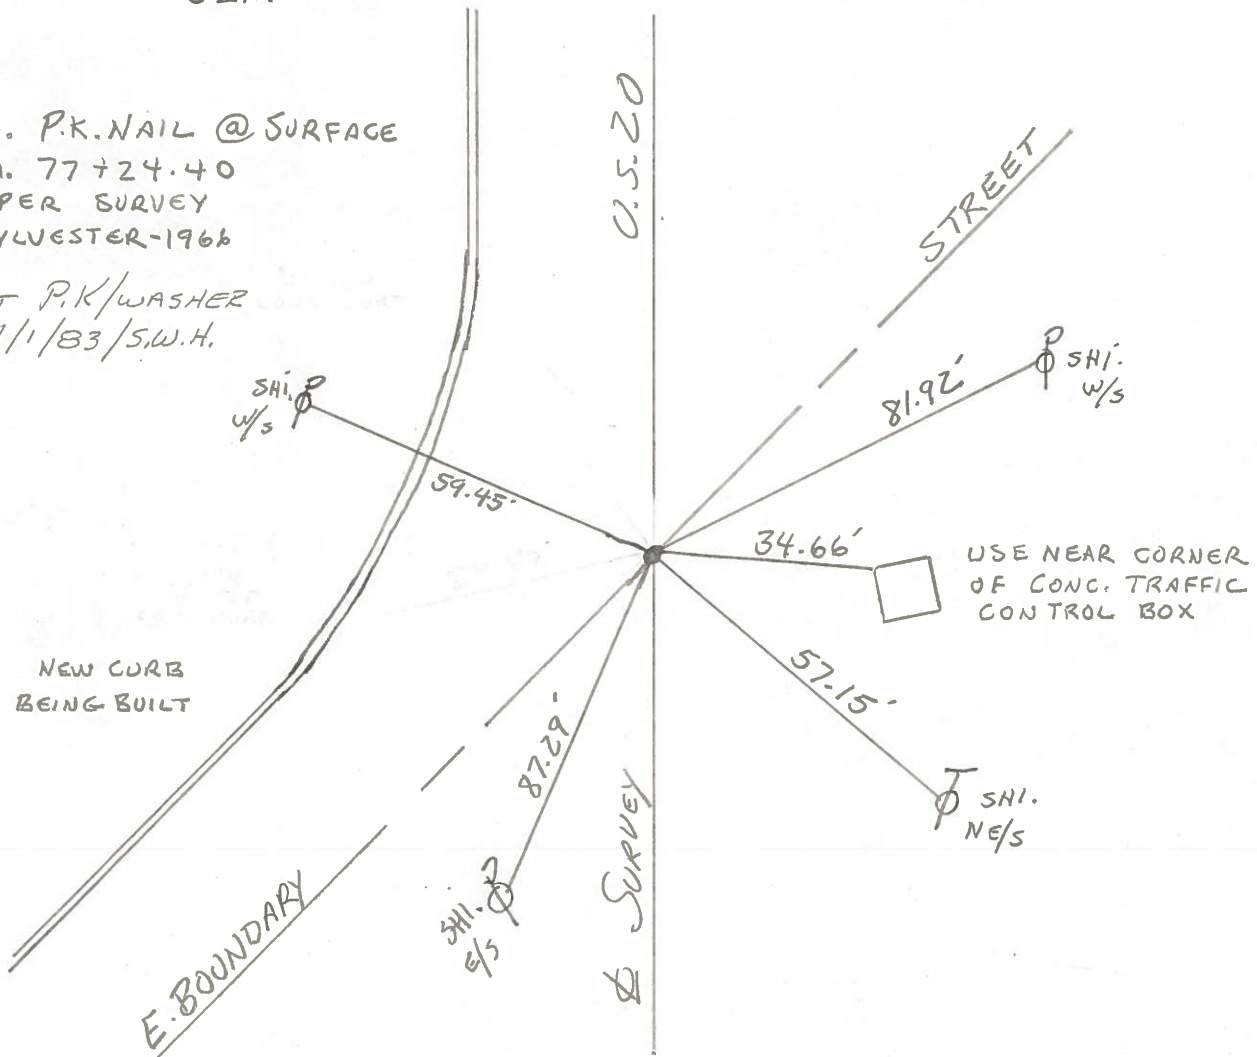 . P.K. NAIL @ SURFACE
. 77+24.40
PER SURVEY
YLVESTER-1966
P.K/WASHER
/1/83/S.W.H.
U.S. 20
STREET
SHI. P
W/S
59.45'
P SHI.
W/S
81.92'
34.66'
USE NEAR CORNER
OF CONC. TRAFFIC
CONTROL BOX
57.15'
T SHI.
NE/S
NEW CURB
BEING BUILT
87.29'
P
SHI.
E/S
℄ SURVEY
E. BOUNDARY